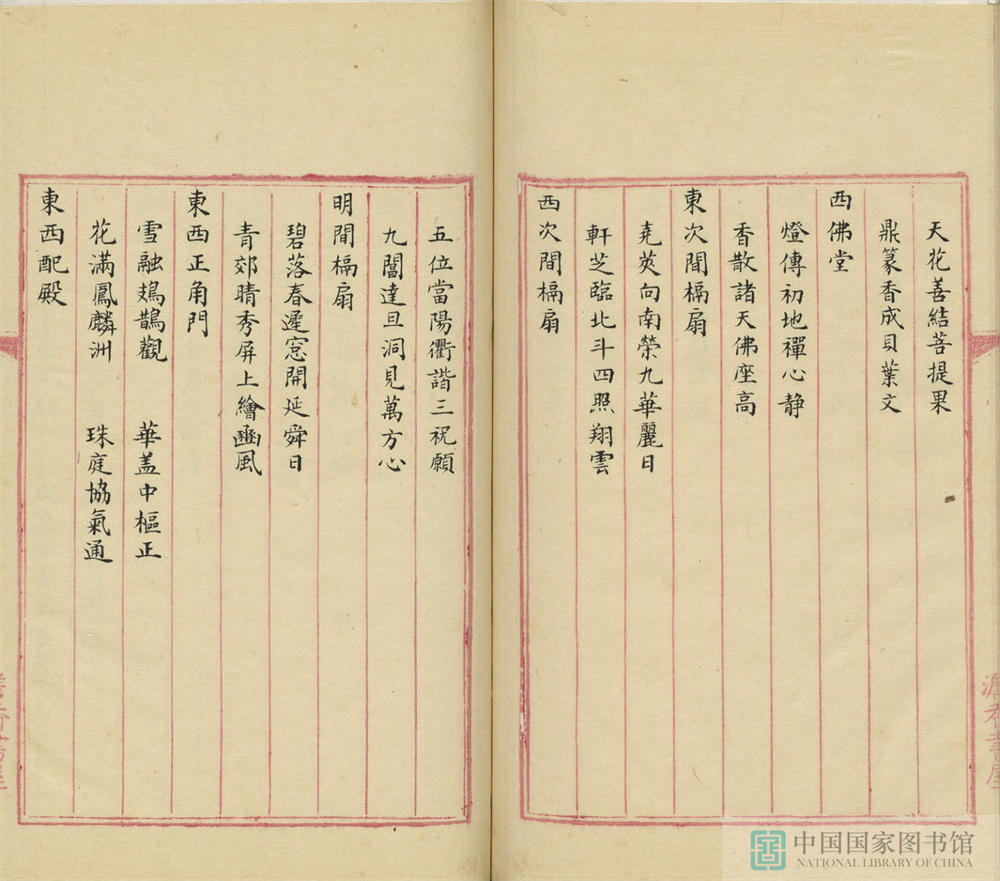 天花善結菩提果
鼎篆香成貝葉文
西佛堂
燈傳初地禪心静
香散諸天佛座高
東次間槅扇
堯蓂向南榮九華麗日
軒芝臨北斗四照翔雲
西次間槅扇
五位當陽衢諧三祝願
九閽達旦洞見萬方心
明間槅扇
碧落春遲窓開延舜日
青郊晴秀屏上繪豳風
東西正角門
雪融鳷鵲觀 華盖中樞正
花滿鳳麟洲 珠庭協氣通
東西配殿
中国国家图书馆
NATIONAL LIBRARY OF CHINA